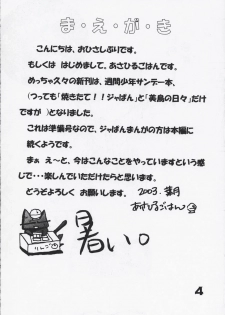 ま・え・が・き
こんにちは、おひさしぶりです。
もしくは はじめまして、あさひるごはんです。
めっちゃ久々の新刊は、週間少年サンデー本、
(つっても「焼きたて!!ジャぱん」と「美鳥の日々」だけ
ですが)となりました。
これは準備号なので、ジャぱんまんがの方は本編に
続くようです。
まぁ え〜と、今はこんなことをやっていますという感
じで・・・楽しんでいただけたらと思います。
どうぞよろしく お願いします。
2003. 葉月
あさひるごはん
暑い。
りんご
4